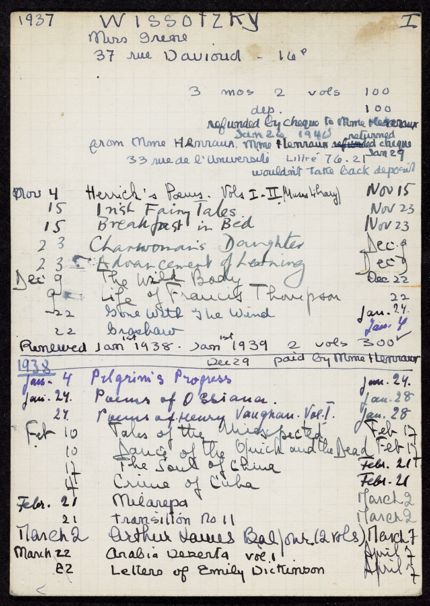 1937 WISSOTZKY I
Miss Irene
37 rue Davioud - 16e
3 mos 2 vols 100
dep. 100
refunded by cheque to Mme Henraux
Jan 26 1940 returned
from Mme Henraux. Mme Henraux refunded cheque
33 rue de l'Université Littré 76.21 Jan 29
wouldn't take back deposit
Nov 4 Herrick's Poems. Vols I-II Nov 15
15 Irish Fairy Tales Nov 23
15 Breakfast in Bed Nov 23
23 Charwoman's Daughter Dec. 9
23 Advancement of Learning Dec 9
Dec 9 The Wild Body Dec 22
9 Life of Francis Thompson 22
22 Gone With The Wind Jan. 24.
22 Crashaw Jan. 4
Renewed Jan 1st 1938 - Jan 1st 1939 2 vols 300
1938 Dec 29 paid by Mme Henraux
Jan. 4 Pilgrim's Progress Jan. 24.
Jan. 24. Poems of Ossian Jan. 28
24. Poems of Henry Vaughan. Vol. I. Jan. 28
Feb 10 Tales of the Unexpected Feb 17
10 Dance of the Quick and the Dead Feb 17
17 The Soul of China Febr. 21
17 Crime of Cuba Febr. 21
Febr. 21 Milarepa March 2
21 transition No 11 March 2
March 2 Arthur James Balfour (2 vols) March 7
March 22 Arabia Deserta vol. 1 April 7
22 Letters of Emily Dickinson April 7